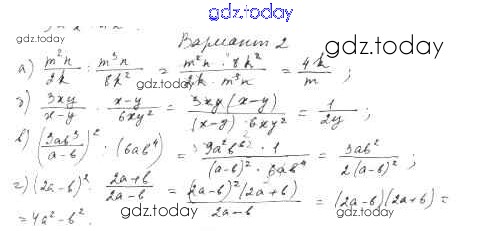 gdz.today
Вариант 2
gdz.today
gdz.today
а) m²n/2k : m³n/8k² = m²n · 8k²/2k · m³n = 4k/m ;
gdz.today
б) 3xy/x-y · x-y/6xy² = 3xy(x-y)/(x-y) · 6xy² = 1/2y ;
в) (3ab³/a-b)² : (6ab⁴) = 9a²b⁶ · 1/(a-b)² · 6ab⁴ = 3ab²/2(a-b)² ;
г) (2a-b)² · 2a+b/2a-b = (2a-b)²(2a+b)/2a-b = (2a-b)(2a+b) =
= 4a² - b².
gdz.today
gdz.today